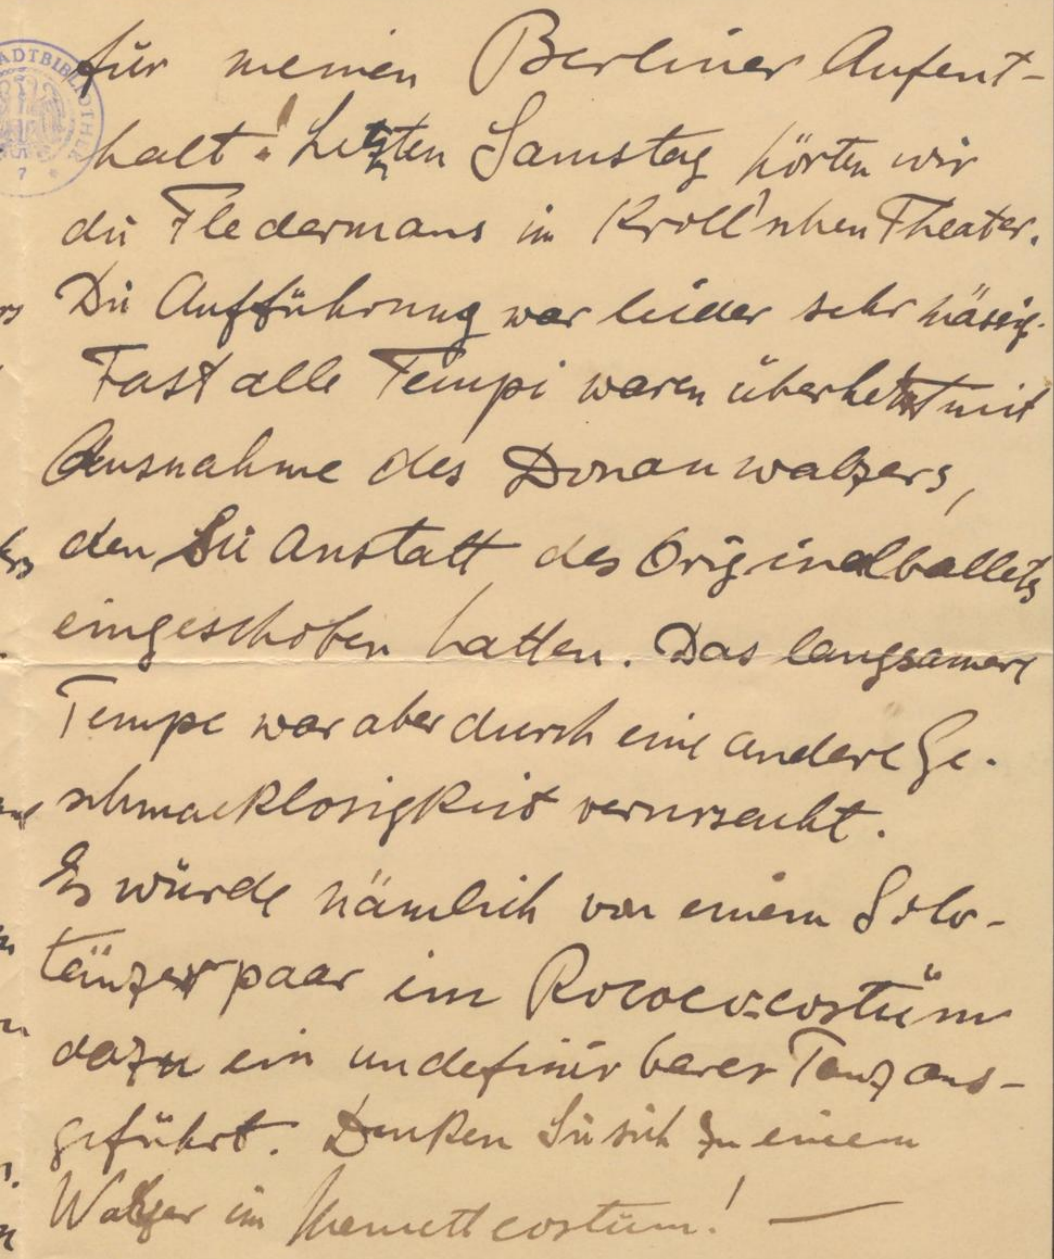 für meinen Berliner Aufent-
halt! Letzten Samstag hörten wir
die Fledermaus im Kroll'schen Theater.
Die Aufführung war leider sehr mässig.
Fast alle Tempi waren überhetzt mit
Ausnahme des Donauwalzers,
den Sie anstatt des Originalballets
eingeschoben hatten. Das langsamere
Tempo war aber durch eine andere Ge-
schmacklosigkeit verursacht.
Es würde nämlich von einem Solo-
tänzerpaar im Rococo-costüm
dazu ein undefinirbarer Tanz aus-
geführt. Denken Sie sich zu einem
Walzer im Menuettcostüm! —